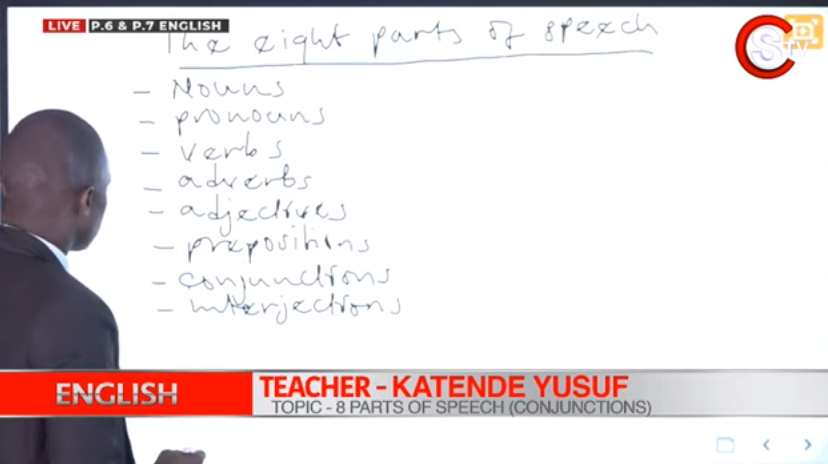 LIVE P.6 & P.7 ENGLISH
The eight parts of speech
CSTV
- Nouns
- pronouns
- verbs
- adverbs
- adjectives
- prepositions
- conjunctions
- interjections
ENGLISH
TEACHER - KATENDE YUSUF
TOPIC - 8 PARTS OF SPEECH (CONJUNCTIONS)